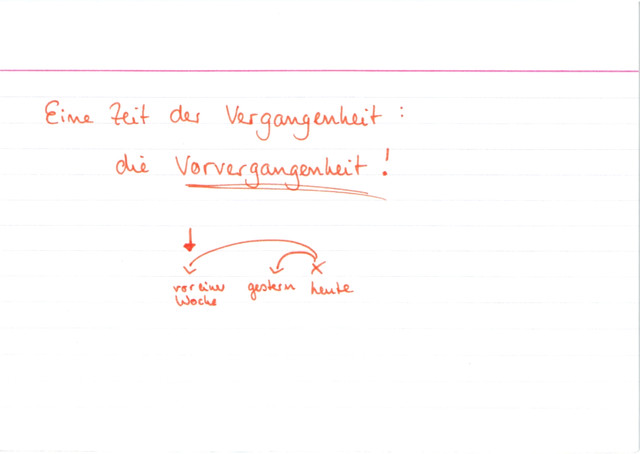 Eine Zeit der Vergangenheit :
die Vorvergangenheit !
vor einer gestern heute
Woche